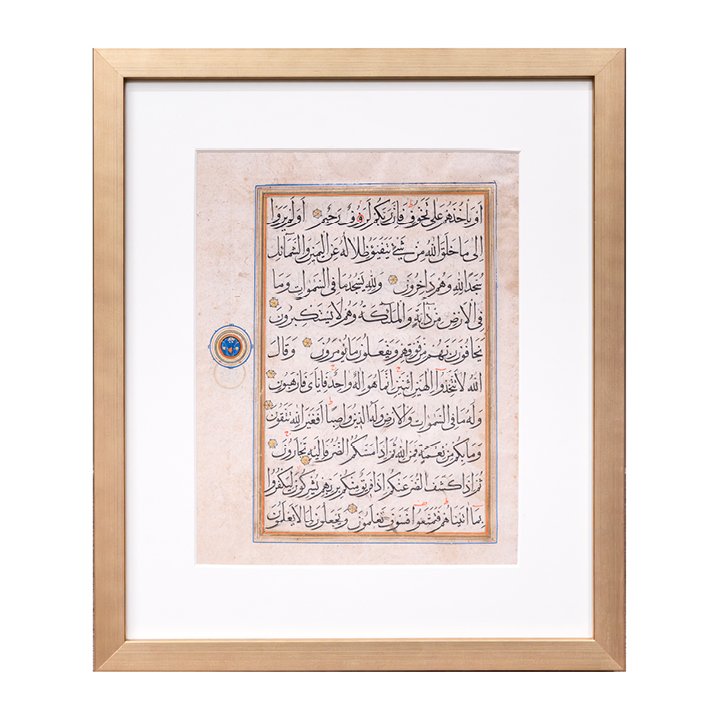 أو يأخذهم على تخوف فإن ربكم لرؤوف رحيم أولم يروا
إلى ما خلق الله من شيء يتفيؤ ظلاله عن اليمين والشمائل
سجدا لله وهم داخرون ولله يسجد ما في السموات وما
في الأرض من دابة والملائكة وهم لا يستكبرون
يخافون ربهم من فوقهم ويفعلون ما يؤمرون وقال
الله لا تتخذوا إلهين اثنين إنما هو إله واحد فإياي فارهبون
وله ما في السموات والأرض وله الدين واصبا أفغير الله تتقون
وما بكم من نعمة فمن الله ثم إذا مسكم الضر فإليه تجأرون
ثم إذا كشف الضر عنكم إذا فريق منكم بربهم يشركون ليكفروا
بما آتيناهم فتمتعوا فسوف تعلمون ويجعلون لما لا يعلمون